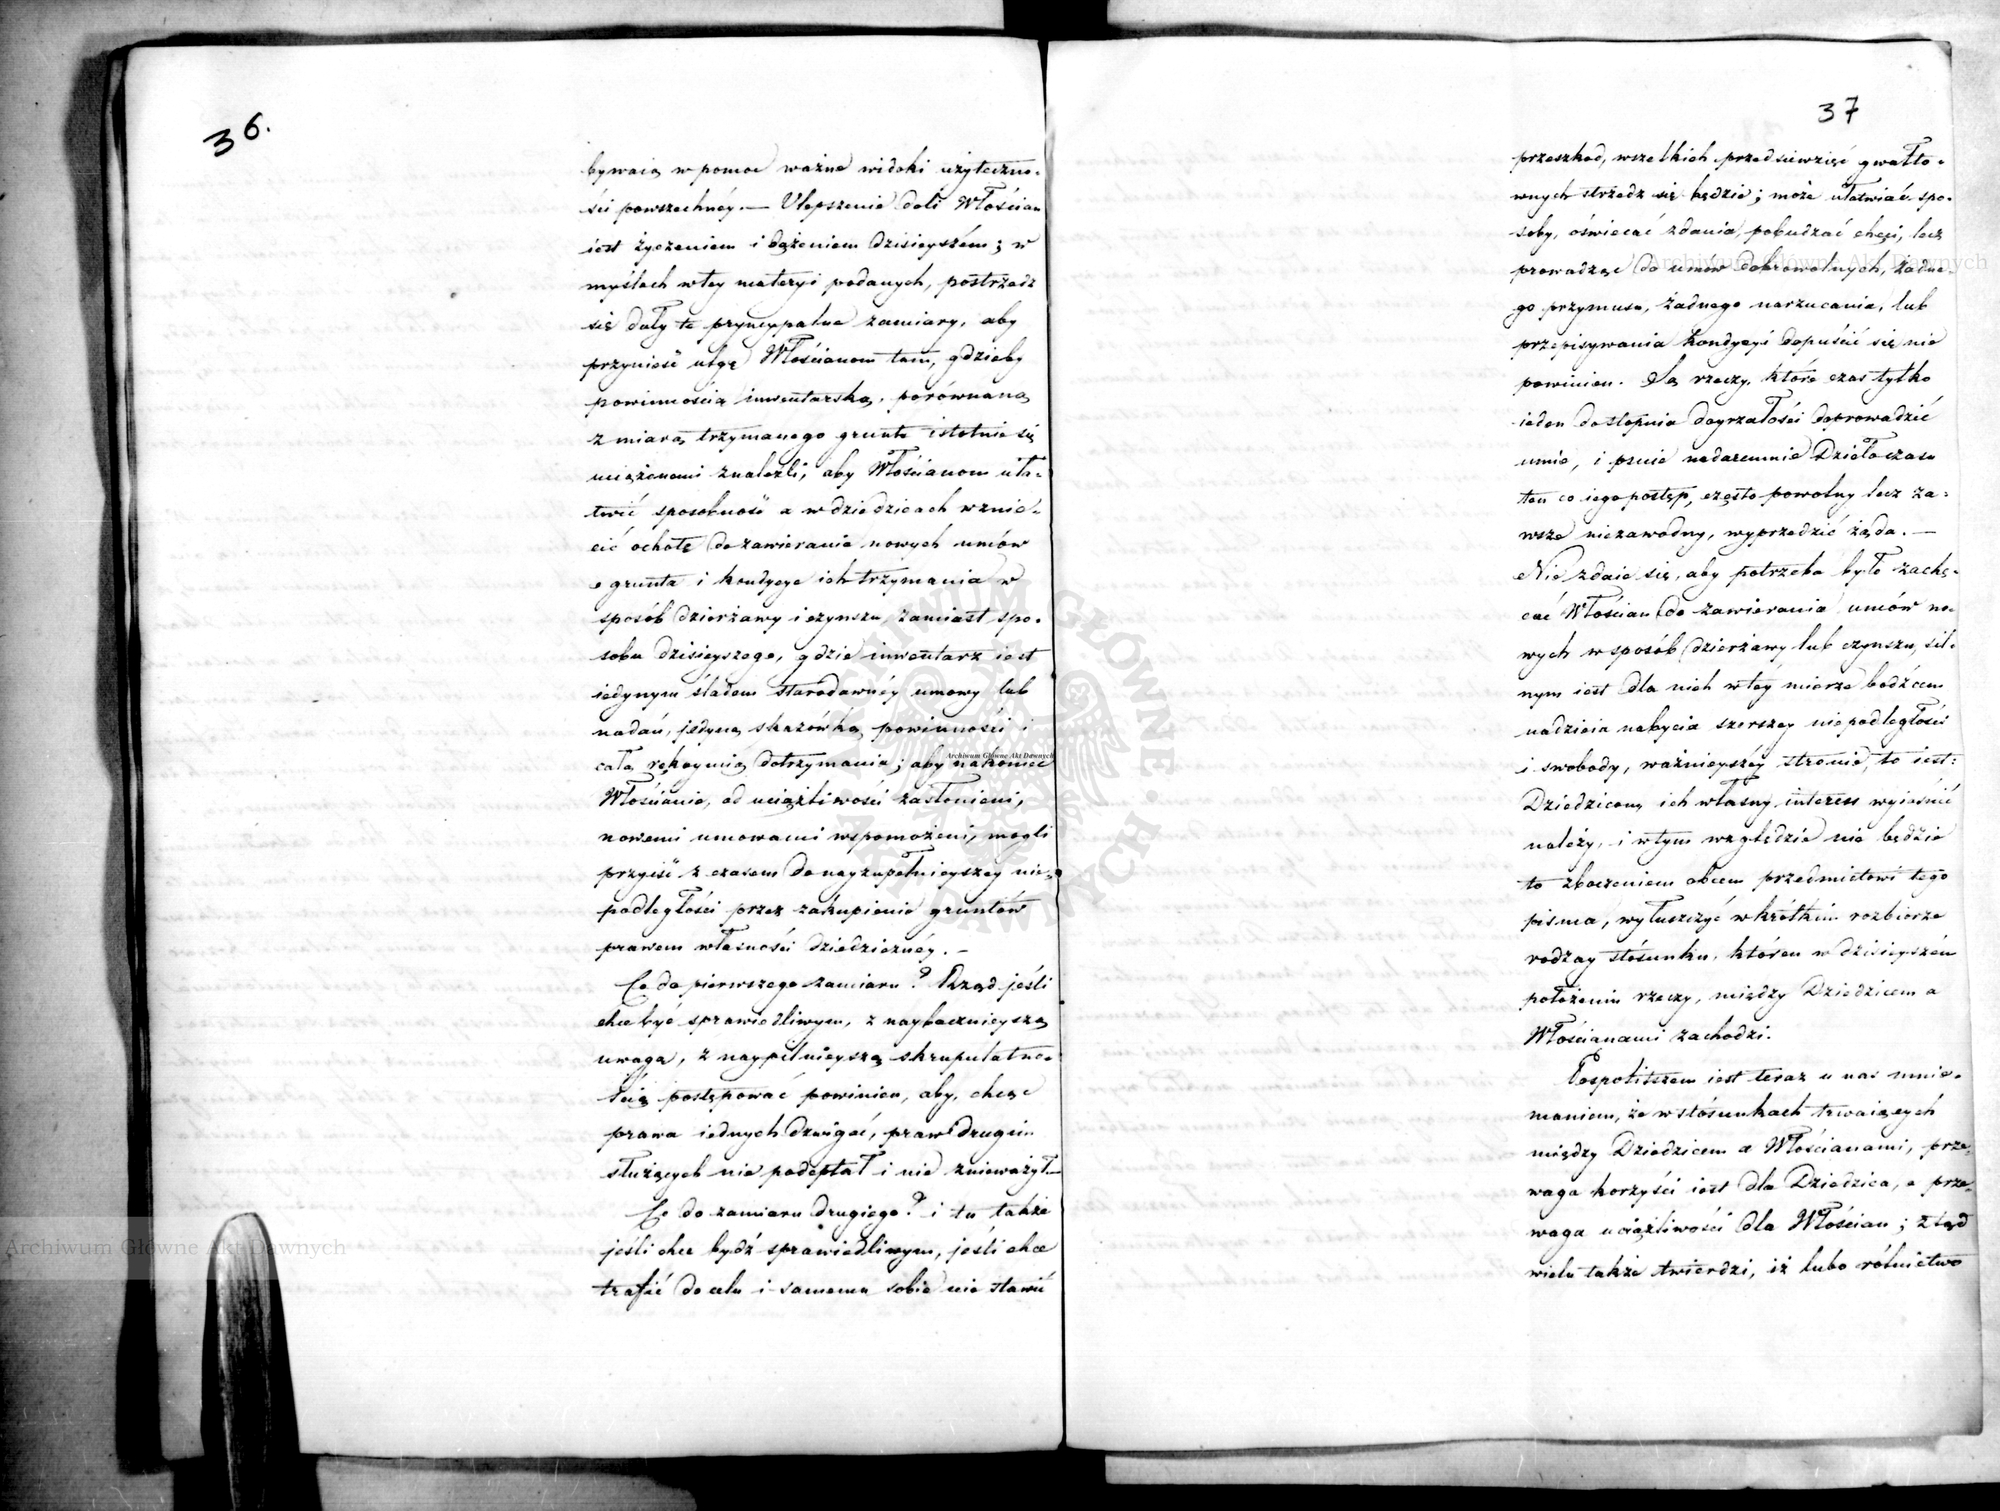 36.
bywaią w pomoc ważne widoki użyteczno-
ści powszechnéy. — Ulepszenie doli Włościan
iest życzeniem i dążeniem dzisieyszém; w
myślach w tey materyi podanych, postrzedz
się dały te pryncypalne zamiary, aby
przynieść ulgę Włościanom tam, gdzieby
powinnością inwentarską, porównaną
z miarą trzymanego gruntu istotnie się
uciążonemi znaleźli, aby Włościanom uła-
twić sposobność a w dziedzicach wznie-
cić ochotę do zawierania nowych umów
o grunta i kondycye ich trzymania w
sposób dzierżawy i czynszu, zamiast spo-
sobu dzisieyszego, gdzie inwentarz iest
iedynym śladem starodawnéy umowy lub
nadań, jedyną skazówką powinności i
całą rękoymią dotrzymania; aby nakoniec
Włościanie, od uciążliwości zasłonieni,
nowemi umowami wspomożeni, mogli
przyiść z czasem do nayzupełnieyszey nie-
podległości przez zakupienie gruntów
prawem własności dziedzicznéy. —
Co do pierwszego zamiaru? Rząd jeśli
chce być sprawiedliwym, z naybacznieyszą
uwagą, z naypilnieyszą skrupulatno-
ścią postępować powinien, aby, chcąc
prawa iednych dzwigać, praw drugim
służących nie podeptał i nie znieważył. —
Co do zamiaru drugiego? i tu także
jeśli chce bydź sprawiedliwym, jeśli chce
trafić do celu i samemu sobie nie stawić
37
przeszkod, wszelkich przedsiewzięć gwałto-
wnych strzedz się będzie; może ułatwiać spo-
soby, oświecać zdania, pobudzać chęci, lecz
prowadząc do umów dobrowolnych, żadne-
go przymusu, żadnego narzucania, lub
przepisywania kondycyi dopuścić się nie
powinien. Są rzeczy, które czas tylko
ieden do stopnia doyrzałości doprowadzić
umie, i psuie nadaremnie Dzieło czasu
ten co iego postęp, często powolny lecz za-
wsze niezawodny, wyprzedzić żąda. —
Nie zdaie się, aby potrzeba było zachę-
cać Włościan do zawierania umów no-
wych w sposób dzierżawy lub czynszu, sil-
nym iest dla nich w téy mierze bodźcem
nadzieia nabycia szerszey niepodległości
i swobody, ważnieyszéy stronie, to iest:
Dziedzicom ich własny interess wyiaśnić
należy, i w tym względzie nie będzie
to zboczeniem obcem przedmiotowi tego
pisma, wyłuszczyć w krótkim rozbiorze
rodzay stósunku, któren w dzisieyszém
położeniu rzeczy, między Dziedzicem a
Włościanami zachodzi.
Pospolitszem iest teraz u nas mnie-
maniem, że w stósunkach trwaiących
między Dziedzicem a Włościanami, prze-
waga korzyści iest dla Dziedzica, a prze-
waga uciążliwości dla Włościan; ztąd
wielu także twierdzi, iż lubo rólnictwo
Archiwum Główne Akt Dawnych
Archiwum Główne Akt Dawnych
Archiwum Główne Akt Dawnych
ARCHIWUM GŁÓWNE AKT DAWNYCH